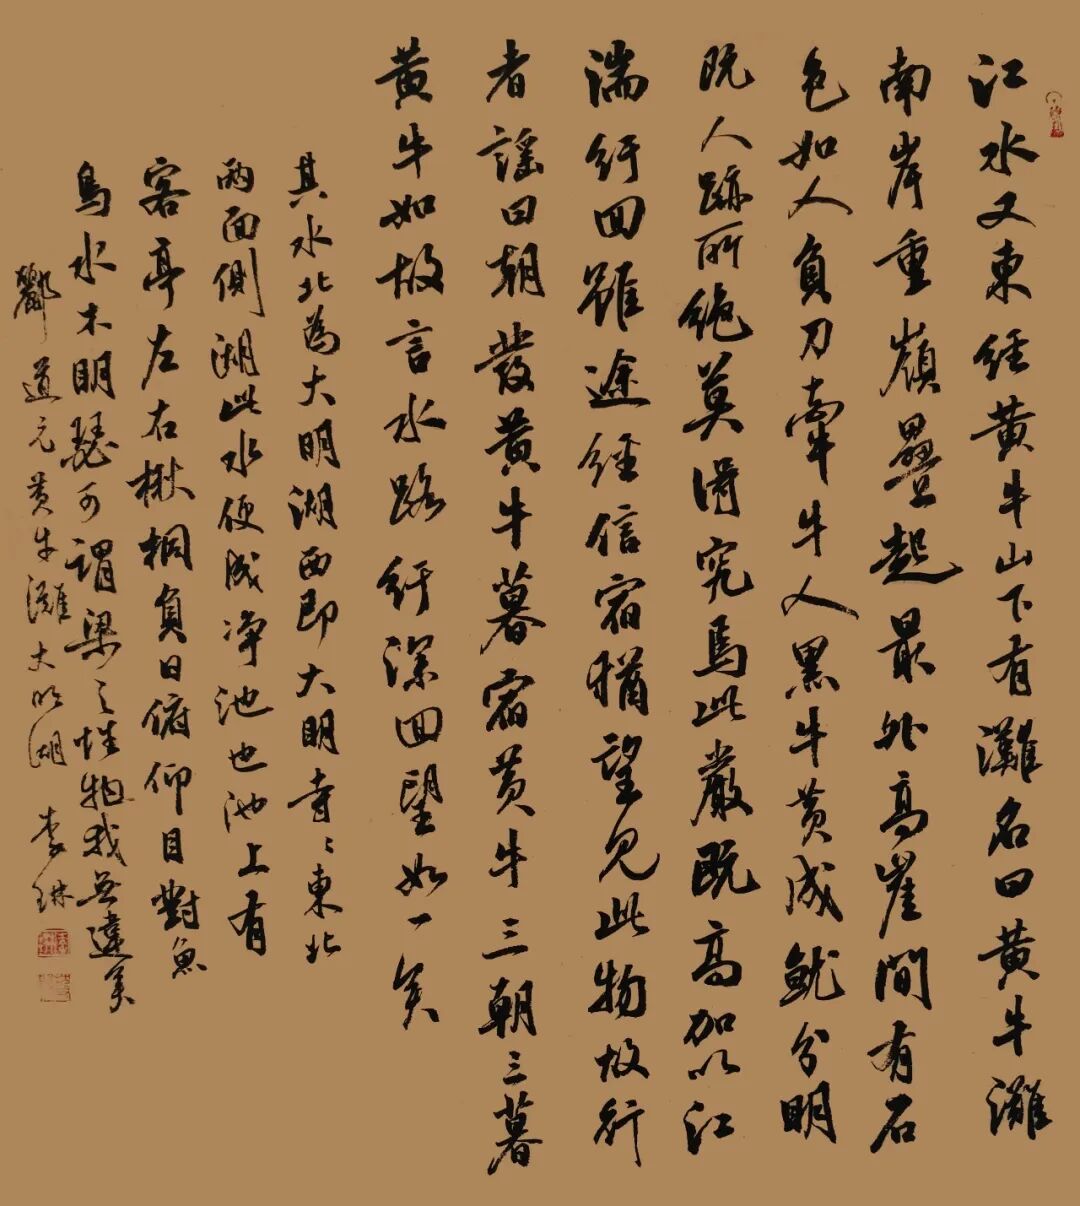 江水又東經黃牛山下有灘名曰黃牛灘
南岸重嶺疊起最外高崖間有石
色如人負刀牽牛人黑牛黃成就分明
既人跡所絕莫得究焉此巖既高加以江
湍紆回雖途經信宿猶望見此物故行
者謠曰朝發黃牛暮宿黃牛三朝三暮
黃牛如故言水路紆深回望如一矣
其水北為大明湖西即大明寺寺東北
兩面側湖此水便成淨池也池上有
客亭左右楸桐負日俯仰目對魚
鳥水木明瑟可謂濠梁之性物我無違矣
酈道元黃牛灘大明湖 李琳